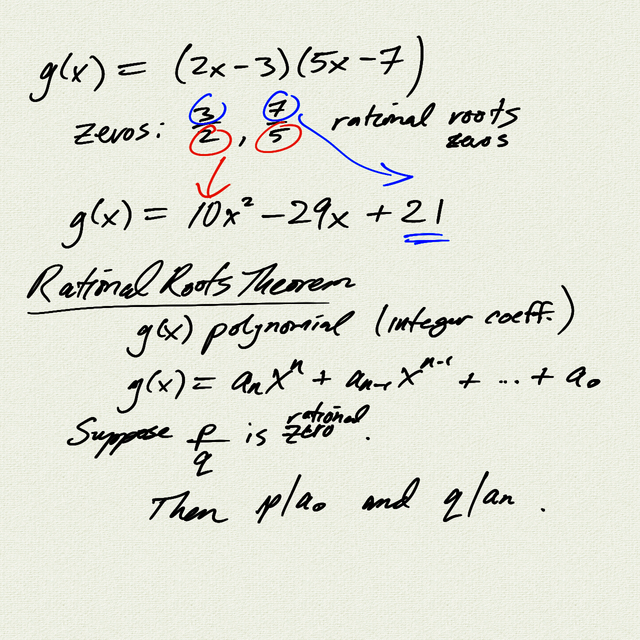 g(x) = (2x-3)(5x-7)
zeros: 3/2, 7/5 rational roots
zeros
g(x) = 10x² - 29x + 21
Rational Roots Theorem
g(x) polynomial (integer coeff.)
g(x) = aₙxⁿ + aₙ₋₁xⁿ⁻¹ + ... + a₀
Suppose p/q is rational zero.
Then p/a₀ and q/aₙ.